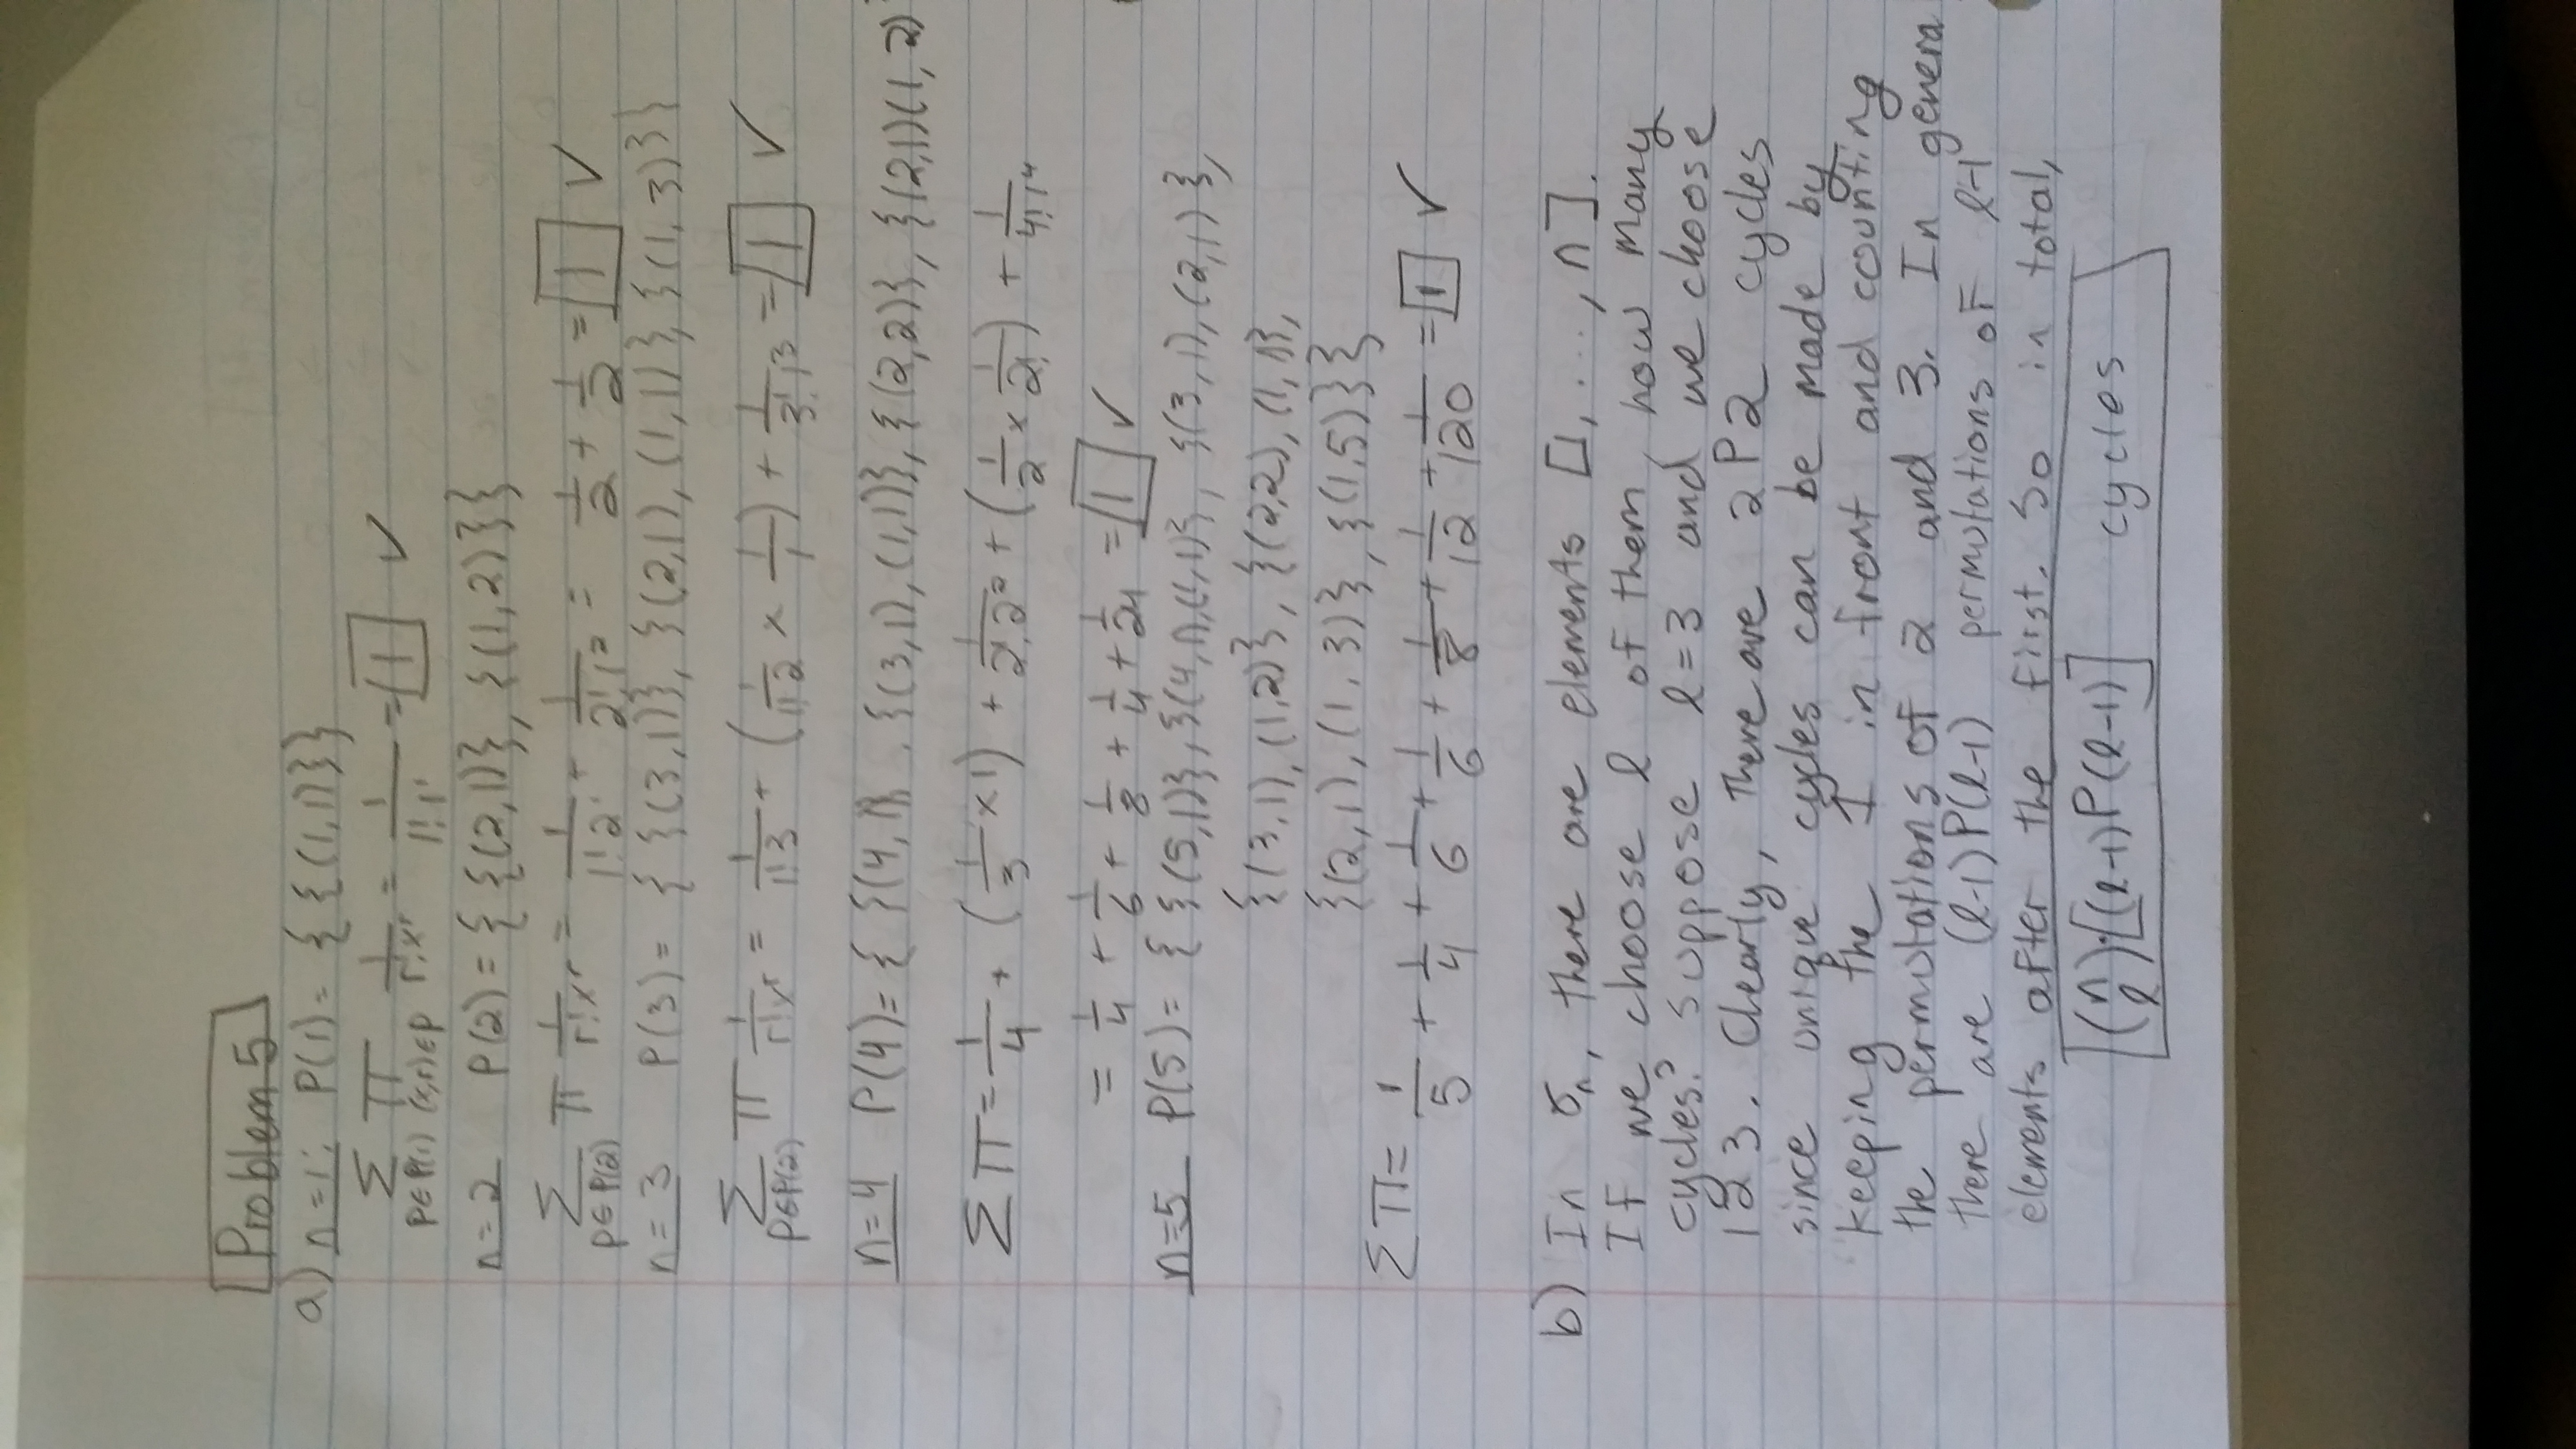 Problem 5
a) n=1: P(1) = { {(1,1)}}
Σ P∈P(1) Π (x,r)∈p 1/r!x^r = 1/1!1' = 1 ✓
n=2 P(2) = { {(2,1)}, {(1,2)}}
Σ P∈P(2) Π 1/r!x^r = 1/1!2' + 1/2!1² = 1/2 + 1/2 = 1 ✓
n=3 P(3) = { {(3,1)}, {(2,1), (1,1)}, {(1,3)}}
Σ P∈P(2) Π 1/r!x^r = 1/1!3 + (1/1!2 × 1/1) + 1/3!1³ = 1 ✓
n=4 P(4) = { {(4,1)}, {(3,1), (1,1)}, {(2,2)}, {(2,1)(1,2)
ΣΠ = 1/4 + (1/3 × 1) + 1/2!2² + (1/2 × 1/2!) + 1/4!1⁴
= 1/4 + 1/6 + 1/8 + 1/4 + 1/24 = 1 ✓
n=5 P(5) = { {(5,1)}, {(4,1),(1,1)}, {(3,1), (2,1)},
{(3,1), (1,2)}, {(2,2), (1,1)},
{(2,1), (1,3)}, {(1,5)}}
ΣΠ = 1/5 + 1/4 + 1/6 + 1/6 + 1/8 + 1/12 + 1/120 = 1 ✓
b) In σn, there are elements [1, ..., n].
If we choose l of them, how many
cycles? Suppose l=3 and we choose
123. Clearly, there are 2P2 cycles
since unique cycles can be made by
keeping the 1 in front and counting
the permutations of 2 and 3. In genera
there are (l-1)P(l-1) permutations of l-1
elements after the first. So in total,
(n l)·[(l-1)P(l-1)] cycles